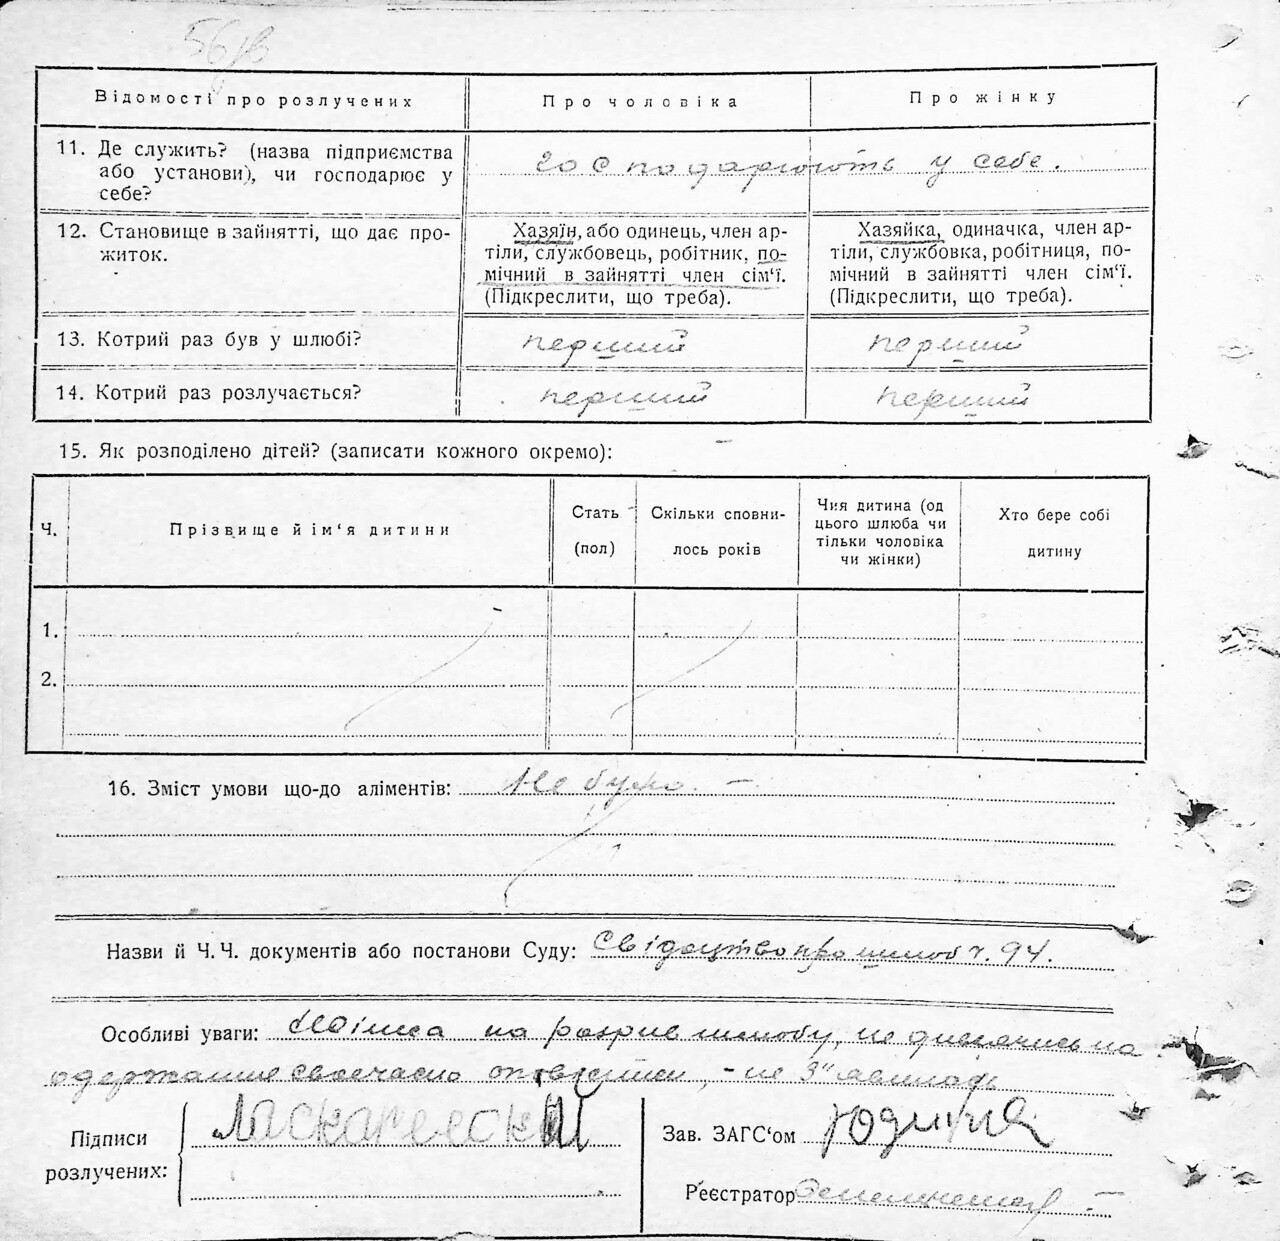 56 зв
Відомості про розлучених
Про чоловіка
Про жінку
11. Де служить? (назва підприємства
або установи), чи господарює у
себе?
господарюють у себе.
12. Становище в зайнятті, що дає про-
житок.
Хазяїн, або одинець, член ар-
тіли, службовець, робітник, по-
мічний в зайнятті член сім‘ї.
(Підкреслити, що треба).
Хазяйка, одиначка, член ар-
тіли, службовка, робітниця, по-
мічний в зайнятті член сім‘ї.
(Підкреслити, що треба).
13. Котрий раз був у шлюбі?
перший
перший
14. Котрий раз розлучається?
перший
перший
15. Як розподілено дітей? (записати кожного окремо): —
Ч.
Прізвище й ім‘я дитини
Стать
(пол)
Скільки сповни-
лось років
Чия дитина (од
цього шлюба чи
тільки чоловіка
чи жінки)
Хто бере собі
дитину
1.
2.
16. Зміст умови що-до аліментів: Не було. —
Назви й Ч. Ч. документів або постанови Суду: Свідоцтво про шлюб ч. 94.
Особливі уваги: на розрив шлюбу, не дивлячись на
одержання своєчасно оповістки, - не
Підписи
розлучених:
Зав. ЗАГС‘ом
Реєстратор